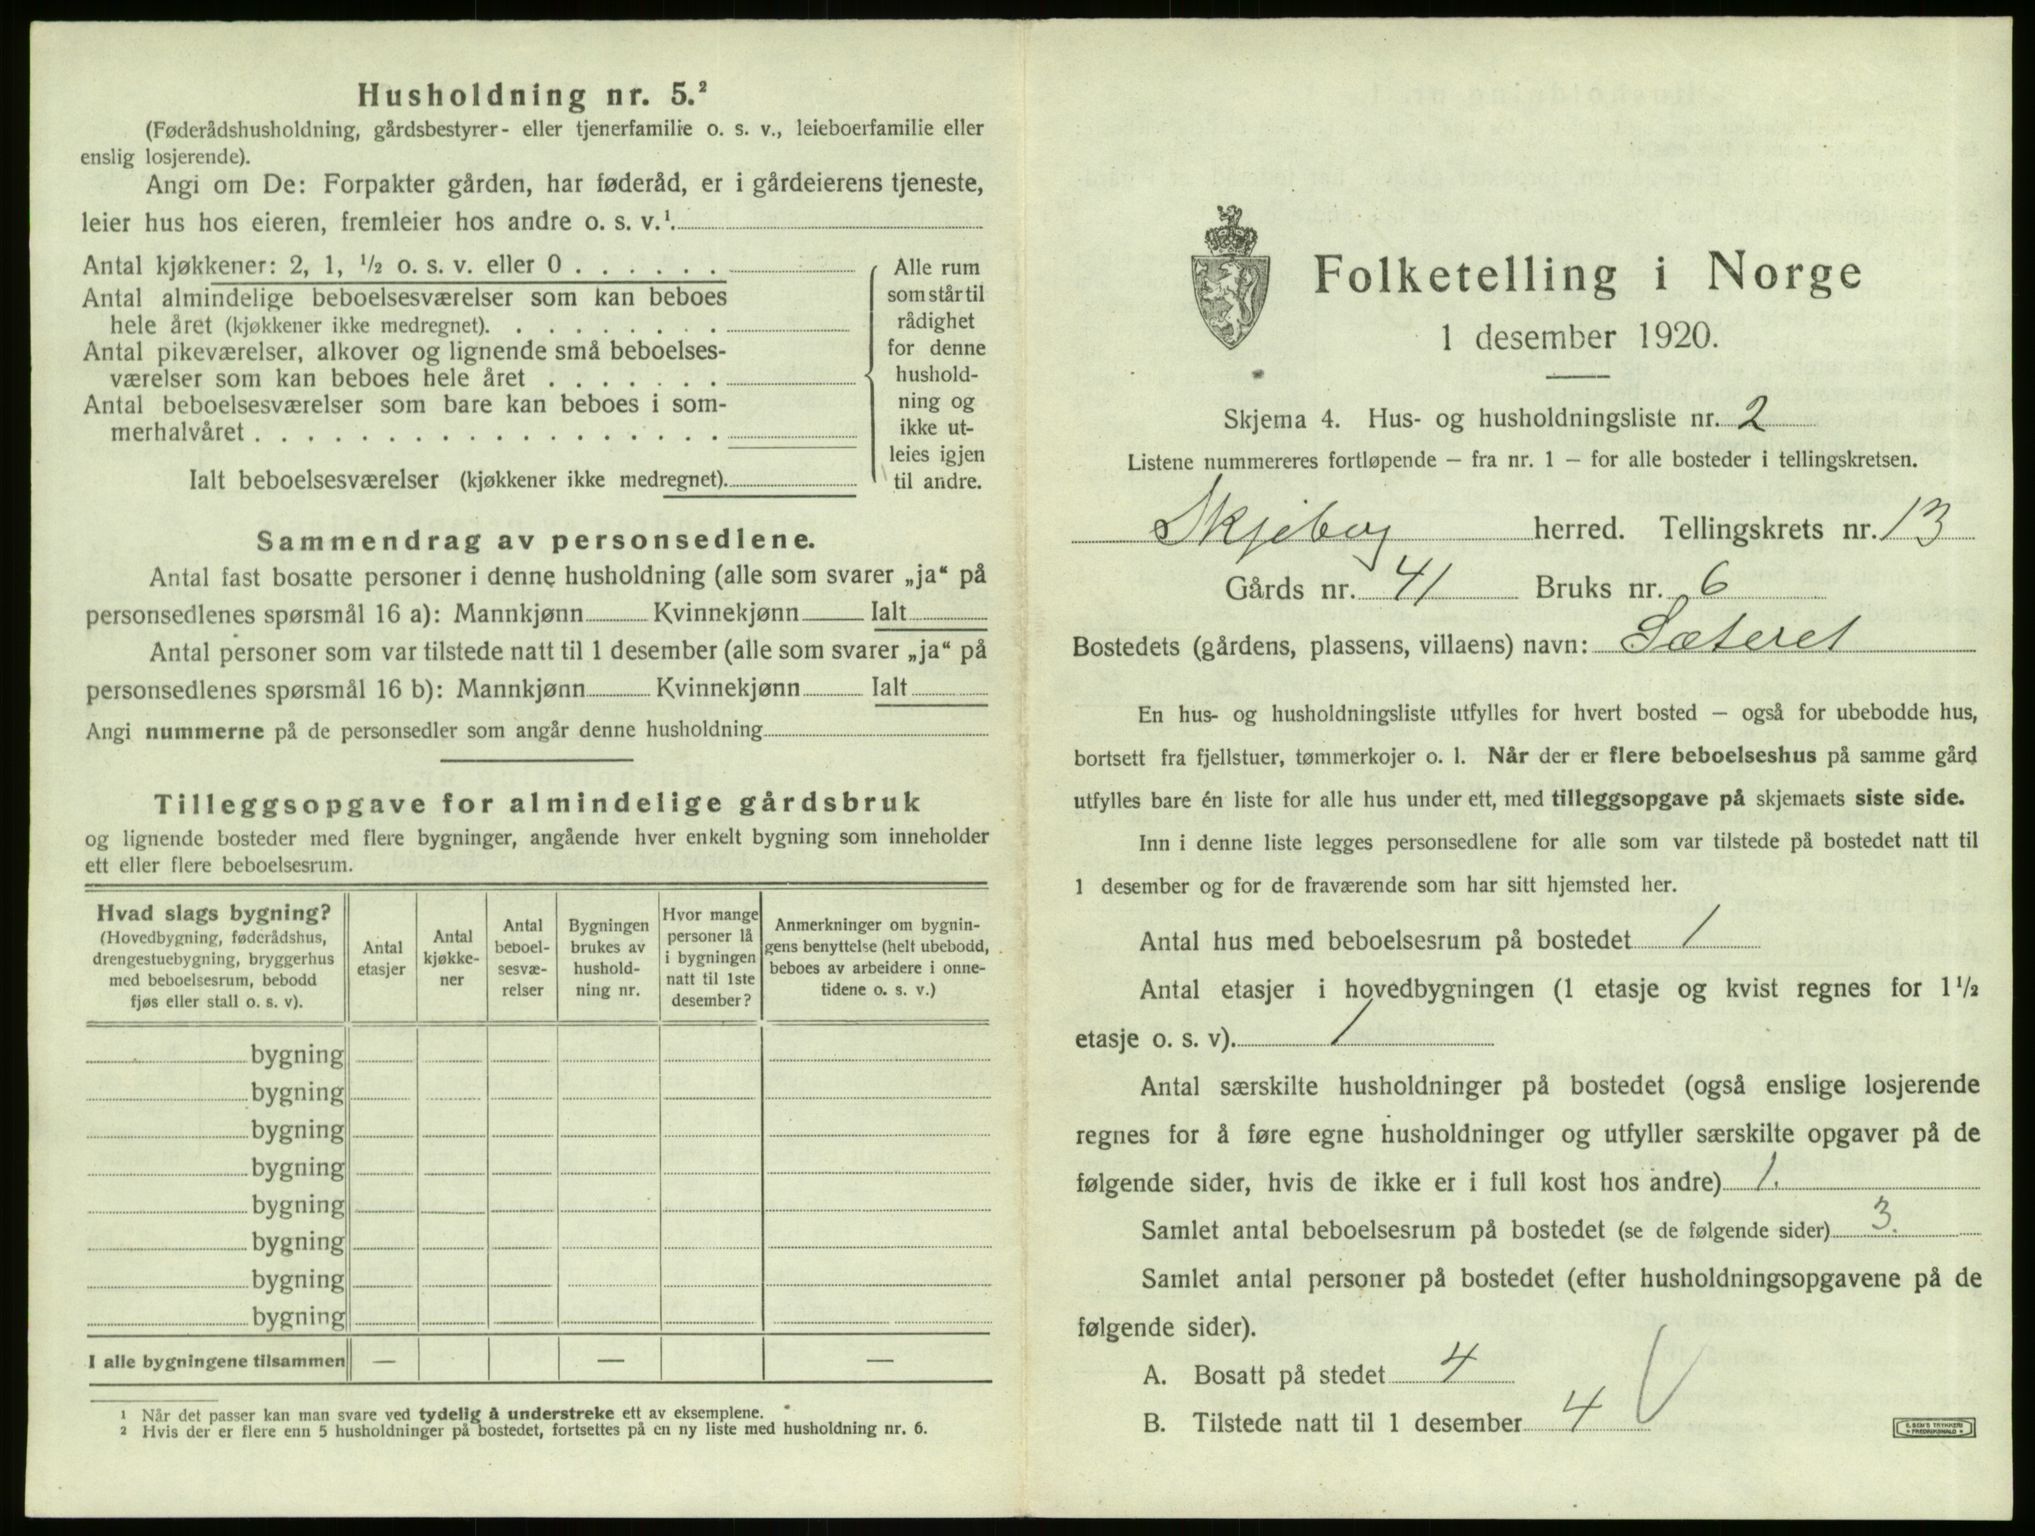 Husholdning nr. 5.²
(Føderådshusholdning, gårdsbestyrer- eller tjenerfamilie o. s. v., leieboerfamilie eller
enslig losjerende).
Angi om De: Forpakter gården, har føderåd, er i gårdeierens tjeneste,
leier hus hos eieren, fremleier hos andre o. s. v.¹
Antal kjøkkener: 2, 1, ½ o. s. v. eller 0 . . . . . .
Antal almindelige beboelsesværelser som kan beboes
hele året (kjøkkener ikke medregnet). . . . . . . . .
Antal pikeværelser, alkover og lignende små beboelses-
værelser som kan beboes hele året . . . . . . .
Antal beboelsesværelser som bare kan beboes i som-
merhalvåret . . . . . . . . . . . . . . . . . .
Ialt beboelsesværelser (kjøkkener ikke medregnet).
Alle rum
som står til
rådighet
for denne
hushold-
ning og
ikke ut-
leies igjen
til andre.
Sammendrag av personsedlene.
Antal fast bosatte personer i denne husholdning (alle som svarer „ja“ på
personsedlenes spørsmål 16 a): Mannkjønn Kvinnekjønn Ialt
Antal personer som var tilstede natt til 1 desember (alle som svarer „ja“ på
personsedlenes spørsmål 16 b): Mannkjønn Kvinnekjønn Ialt
Angi nummerne på de personsedler som angår denne husholdning
Tilleggsopgave for almindelige gårdsbruk
og lignende bosteder med flere bygninger, angående hver enkelt bygning som inneholder
ett eller flere beboelsesrum.
Hvad slags bygning?
(Hovedbygning, føderådshus,
drengestuebygning, bryggerhus
med beboelsesrum, bebodd
fjøs eller stall o. s. v).
Antal
etasjer
Antal
kjøkke-
ner
Antal
beboel-
sesvæ-
relser
Bygningen
brukes av
hushold-
ning nr.
Hvor mange
personer lå
i bygningen
natt til 1ste
desember?
Anmerkninger om bygnin-
gens benyttelse (helt ubebodd,
beboes av arbeidere i onne-
tidene o. s. v.)
bygning
bygning
bygning
bygning
bygning
bygning
bygning
bygning
I alle bygningene tilsammen — — —
¹ Når det passer kan man svare ved tydelig å understreke ett av eksemplene.
² Hvis der er flere enn 5 husholdninger på bostedet, fortsettes på en ny liste med husholdning nr. 6.
Folketelling i Norge
1 desember 1920.
Skjema 4. Hus- og husholdningsliste nr. 2
Listene nummereres fortløpende — fra nr. 1 — for alle bosteder i tellingskretsen.
Skjeberg herred. Tellingskrets nr. 13
Gårds nr. 41 Bruks nr. 6
Bostedets (gårdens, plassens, villaens) navn: Sæteret
En hus- og husholdningsliste utfylles for hvert bosted — også for ubebodde hus,
bortsett fra fjellstuer, tømmerkojer o. l. Når der er flere beboelseshus på samme gård
utfylles bare én liste for alle hus under ett, med tilleggsopgave på skjemaets siste side.
Inn i denne liste legges personsedlene for alle som var tilstede på bostedet natt til
1 desember og for de fraværende som har sitt hjemsted her.
Antal hus med beboelsesrum på bostedet 1
Antal etasjer i hovedbygningen (1 etasje og kvist regnes for 1½
etasje o. s. v). 1
Antal særskilte husholdninger på bostedet (også enslige losjerende
regnes for å føre egne husholdninger og utfyller særskilte opgaver på de
følgende sider, hvis de ikke er i full kost hos andre) 1.
Samlet antal beboelsesrum på bostedet (se de følgende sider) 3.
Samlet antal personer på bostedet (efter husholdningsopgavene på de
følgende sider).
A. Bosatt på stedet 4
B. Tilstede natt til 1 desember 4